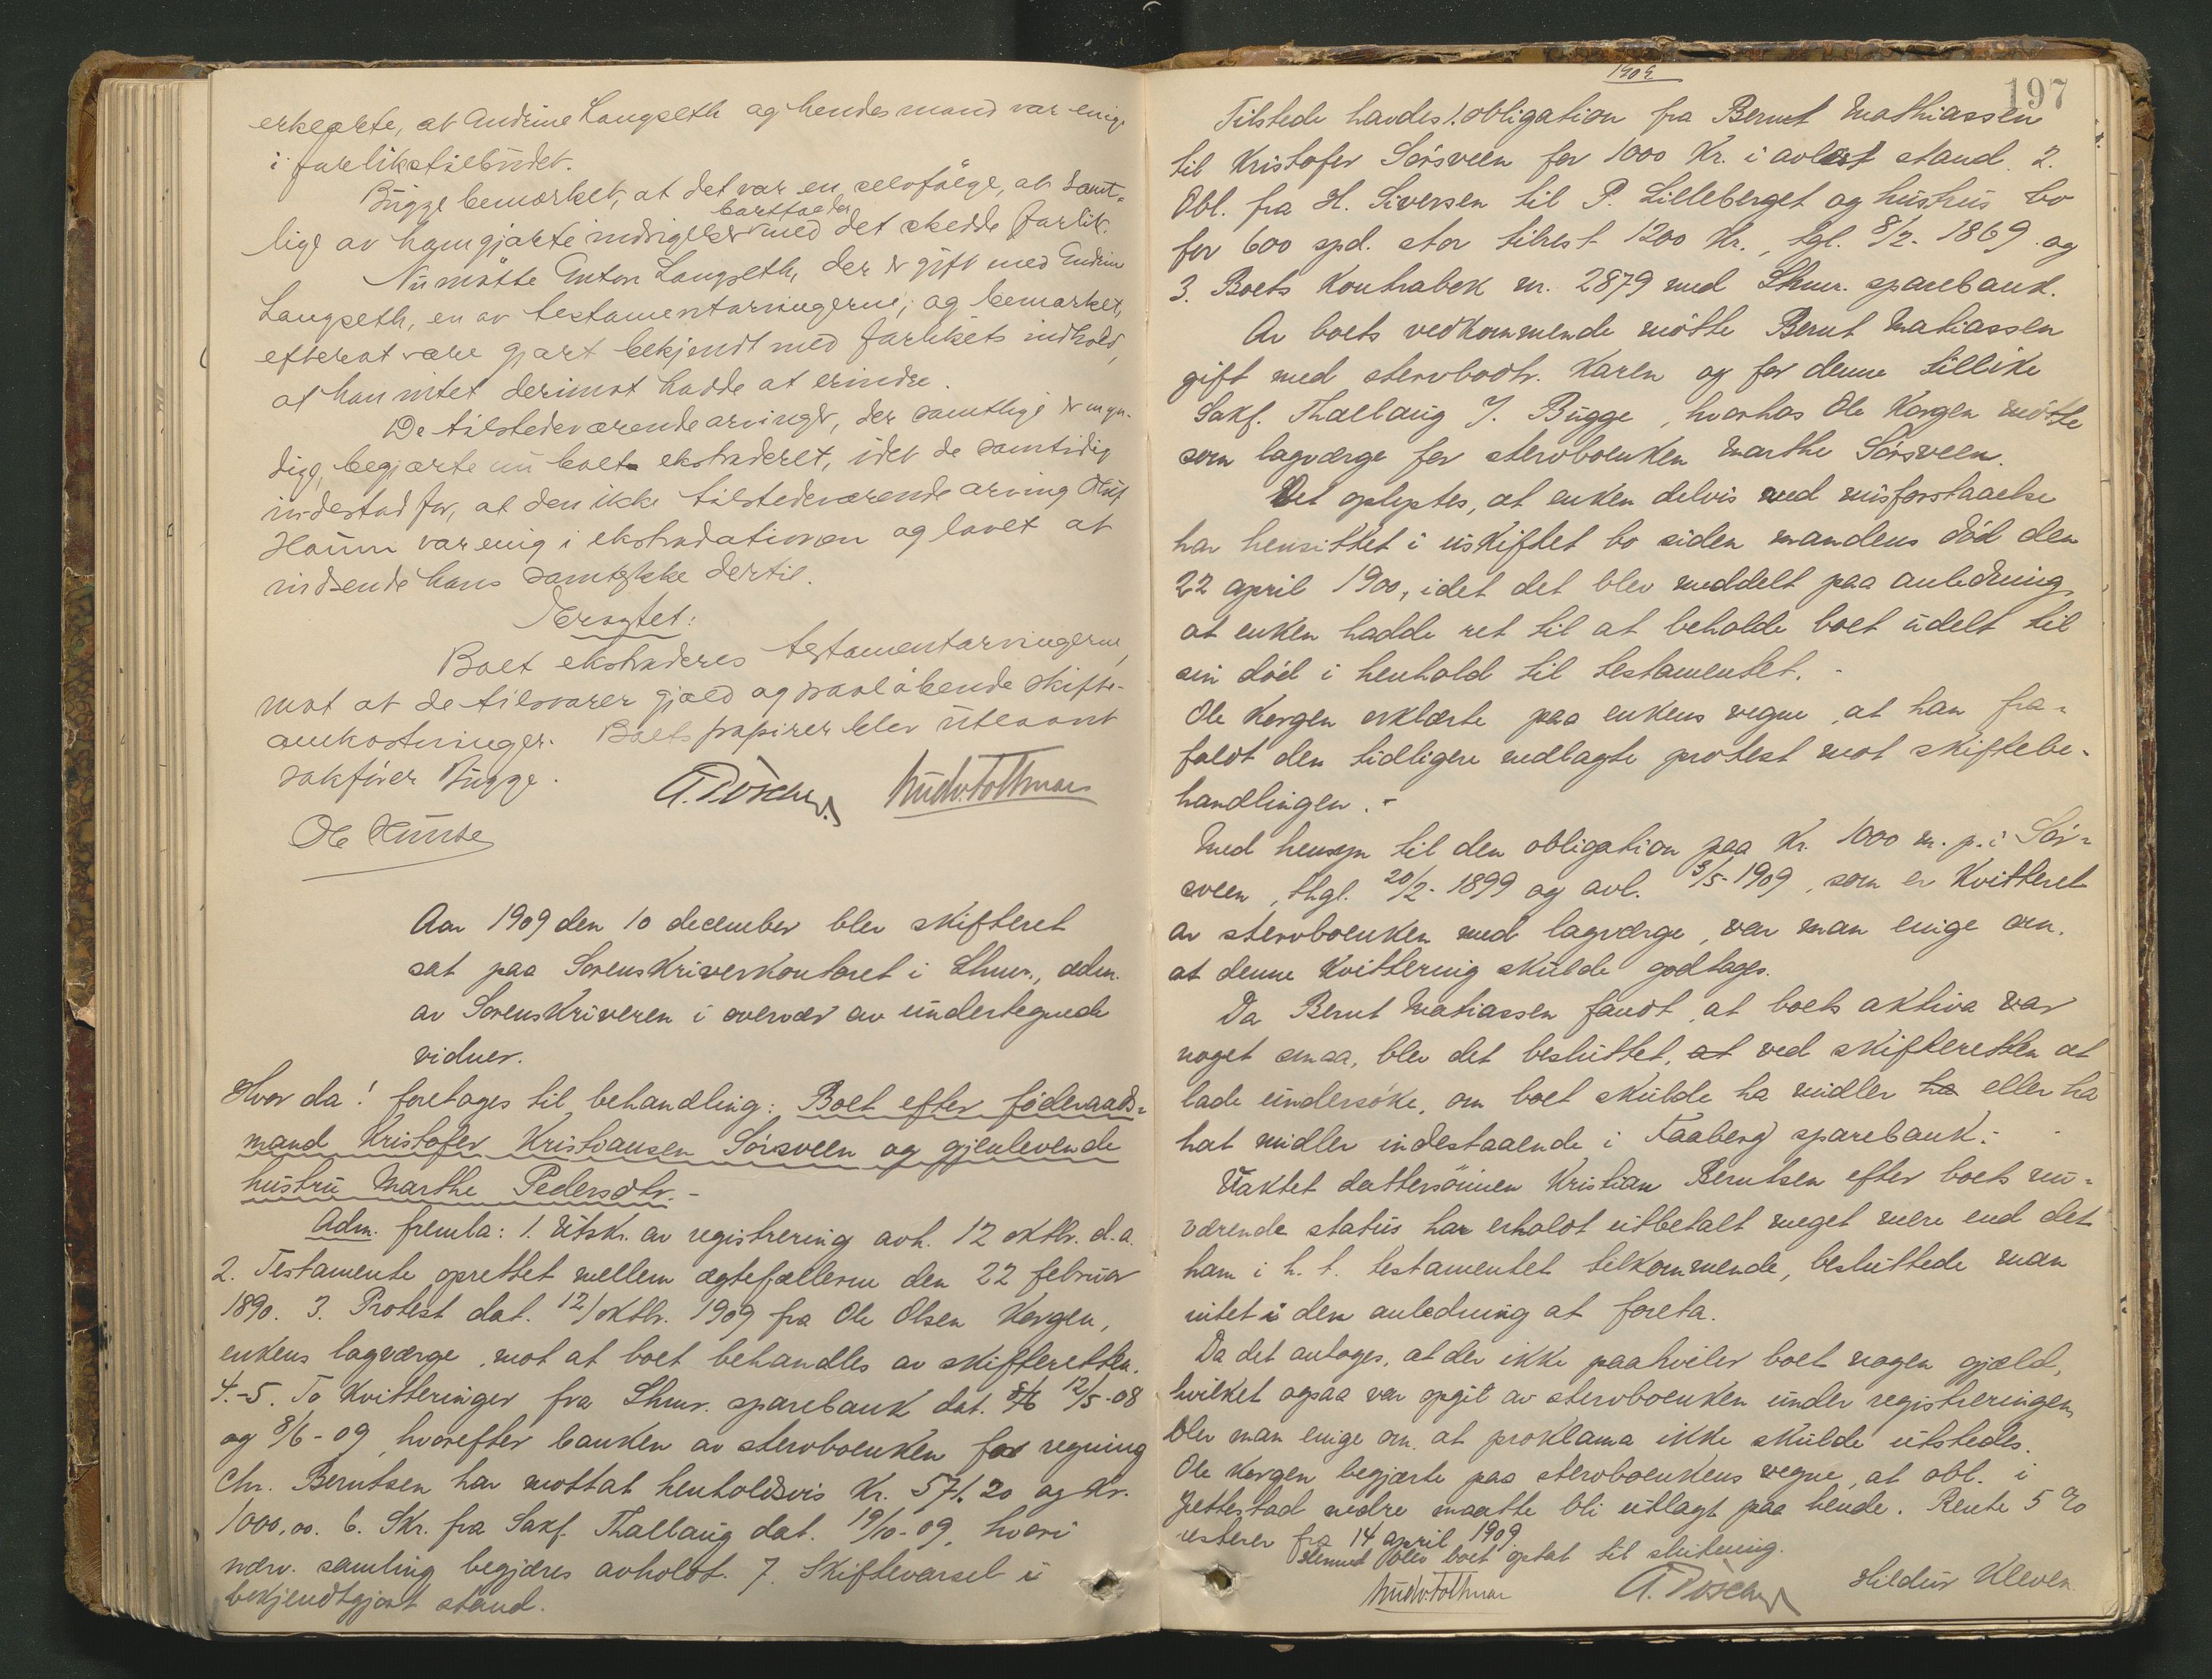 erkleærte, at Andrine Langseth og hendes mand var enige
i forlikstilbudet.
Bugge bemærket, at det var en selvfölge, at samt-
lige av ham gjorte indsigelser bortfaldt med det skedde forlik.
Nu mötte Anton Langseth, der er gift med Andrine
Langseth, en av testamentarvingerne, og bemærket,
efterat være gjort bekjendt med forlikets indhold,
at han intet derimot hadde at erindre.
De tilstedeværende arvinger, der samtlige er myn-
dige, begjærte nu boet ekstraderet, idet de samtidig
indestod for, at den ikke tilstedeværende arving Oluf
Haium var enig i ekstradationen og lovet at
indsende hans samtykke dertil.
Eragtet:
Boet ekstraderes testamentarvingerne,
mot at de tilsvarer gjæld og paaløbende skifte-
omkostninger. Boets papirer blev utleveret
sakförer Bugge.
Ole Kunste
Aar 1909 den 10 december blev skifteret
sat paa Sorenskriverkontoret i Lhmr., adm.
av Sorenskriveren i overvær av undertegnede
vidner.
Hvor da! foretoges til behandling: Boet efter föderaads-
mand Kristofer Kristiansen Sörsveen og gjenlevende
hustru Marthe Pedersdtr.-
Adm. fremla: 1. Utskr. av registrering avh. 12 oktbr. d.a.
2. Testamente oprettet mellem ægtefællerne den 22 februar
1890. 3. Protest dat. 12/oktbr. 1909 fra Ole Olsen Korgen,
enkens lagværge, mot at boet behandles av skifteretten.
4.-5. To kvitteringer fra Lhmr. sparebank dat. 8/6 12/5-08
og 8/6-09, hvorefter banken av stervboenken for regning
Chr. Berntsen har mottat henholdsvis Kr. 571.20 og Kr.
1000,00. 6. Skr. fra Sakf. Thallaug dat. 19/10-09, hvori
nærv. samling begjæres avholdt. 7. Skiftevarsel i
bekjendtgjort stand.
1909.
197
Tilstede havdes 1. obligation fra Bernt Mathiassen
til Kristofer Sörsveen for 1000 Kr. i avlest stand. 2.
Obl. fra H. Siversen til P. Lilleberget og hustrus bo
for 600 spd. stor tilrest 1200 Kr., tgl. 8/2-1869. og
3. Boets Kontrabok nr. 2879 med Lhmr. sparebank.
Av boets vedkommende mötte Bernt Matiassen
gift med stervbodtr. Karen og for denne tillike
Sakf. Thallaug J. Bugge, hvorhos Ole Korgen mötte
som lagværge for stervboenken Marthe Sörsveen.
Det oplystes, at enken delvis ved misforstaaelse
har hensittet i uskiftet bo siden mandens död den
22 april 1900, idet det blev meddelt paa anledning
at enken hadde ret til at beholde boet udelt til
sin död i henhold til testamentet.-
Ole Korgen erklærte paa enkens vegne, at han fra-
faldt den tidligere nedlagte protest mot skiftebe-
handlingen.-
Med hensyn til den obligation paa Kr. 1000 m. p. i Sör-
sveen, thgl. 20/2-1899 og avl. 3/5-1909, som er kvitteret
av stervboenken med lagværge, var man enige om,
at denne kvittering skulde godtages.
Da Bernt Matiassen fandt, at boets aktiva var
noget smaa, blev det besluttet, at ved skifteretten at
lade undersöke, om boet skulde ha midler ha eller ha
hat midler indestaaende i Faaberg sparebank.-
Uaktet dattersönnen Kristian Berntsen efter boets nu-
værende status har erholdt utbetalt meget mere end det
ham i h. t. testamentet tilkommende, besluttede man
intet i den anledning at foreta.
Da det antoges, at der ikke paahviler boet nogen gjæld,
hvilket ogsaa var opgit av stervboenken under registreringen,
blev man enige om, at proklama ikke skulde utstedes.
Ole Korgen begjærte paa stervboenkens vegne, at obl. i
Jettestad nedre maatte bli utlagt paa hende. Rente 5 %
resterer fra 14 april 1909.
Hermed blev boet optat til slutning.
Hildur Kleven